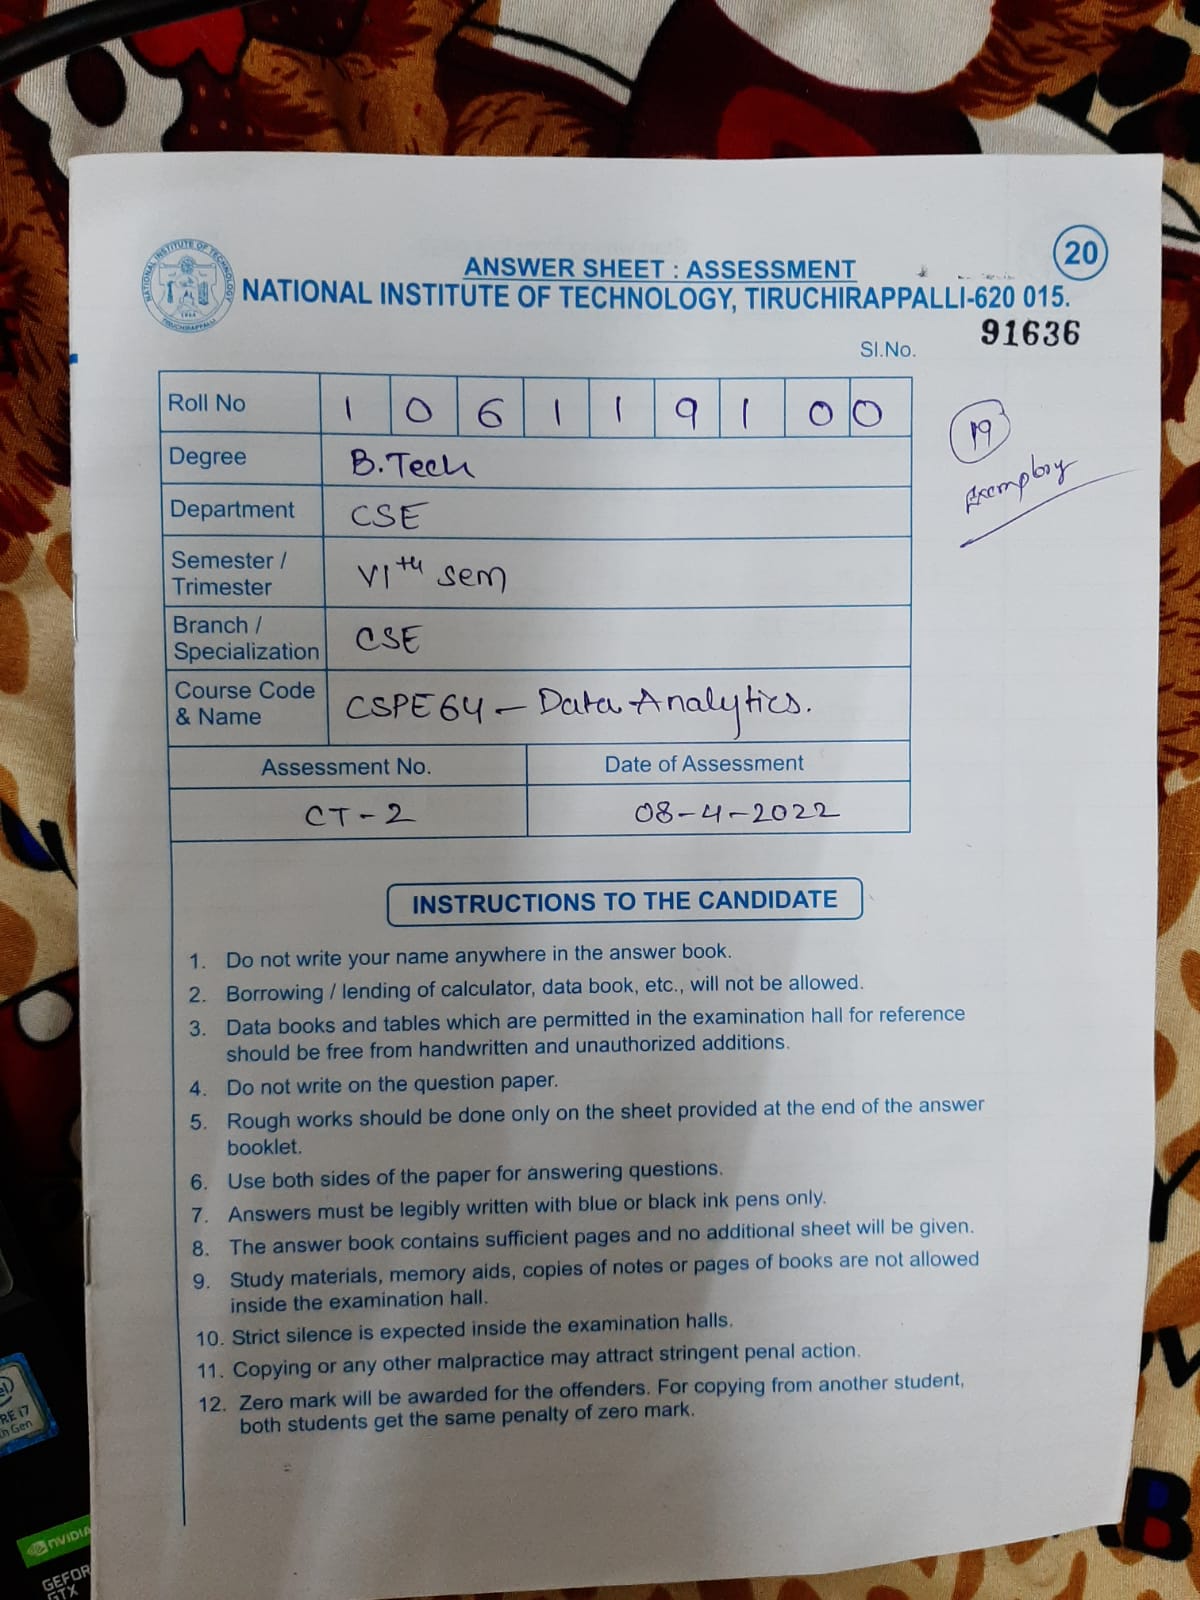 20
ANSWER SHEET : ASSESSMENT
NATIONAL INSTITUTE OF TECHNOLOGY, TIRUCHIRAPPALLI-620 015.
NATIONAL INSTITUTE OF TECHNOLOGY
1964
TIRUCHIRAPPALLI
Sl.No. 91636
Roll No 1 0 6 1 1 9 1 0 0
19
Degree B.Tech
Exemplary
Department CSE
Semester / Trimester VIth sem
Branch / Specialization CSE
Course Code & Name CSPE64 - Data Analytics.
Assessment No. Date of Assessment
CT-2 08-4-2022
INSTRUCTIONS TO THE CANDIDATE
1. Do not write your name anywhere in the answer book.
2. Borrowing / lending of calculator, data book, etc., will not be allowed.
3. Data books and tables which are permitted in the examination hall for reference
should be free from handwritten and unauthorized additions.
4. Do not write on the question paper.
5. Rough works should be done only on the sheet provided at the end of the answer
booklet.
6. Use both sides of the paper for answering questions.
7. Answers must be legibly written with blue or black ink pens only.
8. The answer book contains sufficient pages and no additional sheet will be given.
9. Study materials, memory aids, copies of notes or pages of books are not allowed
inside the examination hall.
10. Strict silence is expected inside the examination halls.
11. Copying or any other malpractice may attract stringent penal action.
12. Zero mark will be awarded for the offenders. For copying from another student,
both students get the same penalty of zero mark.
RE i7
Gen
NVIDIA
GEFOR
GTX
B